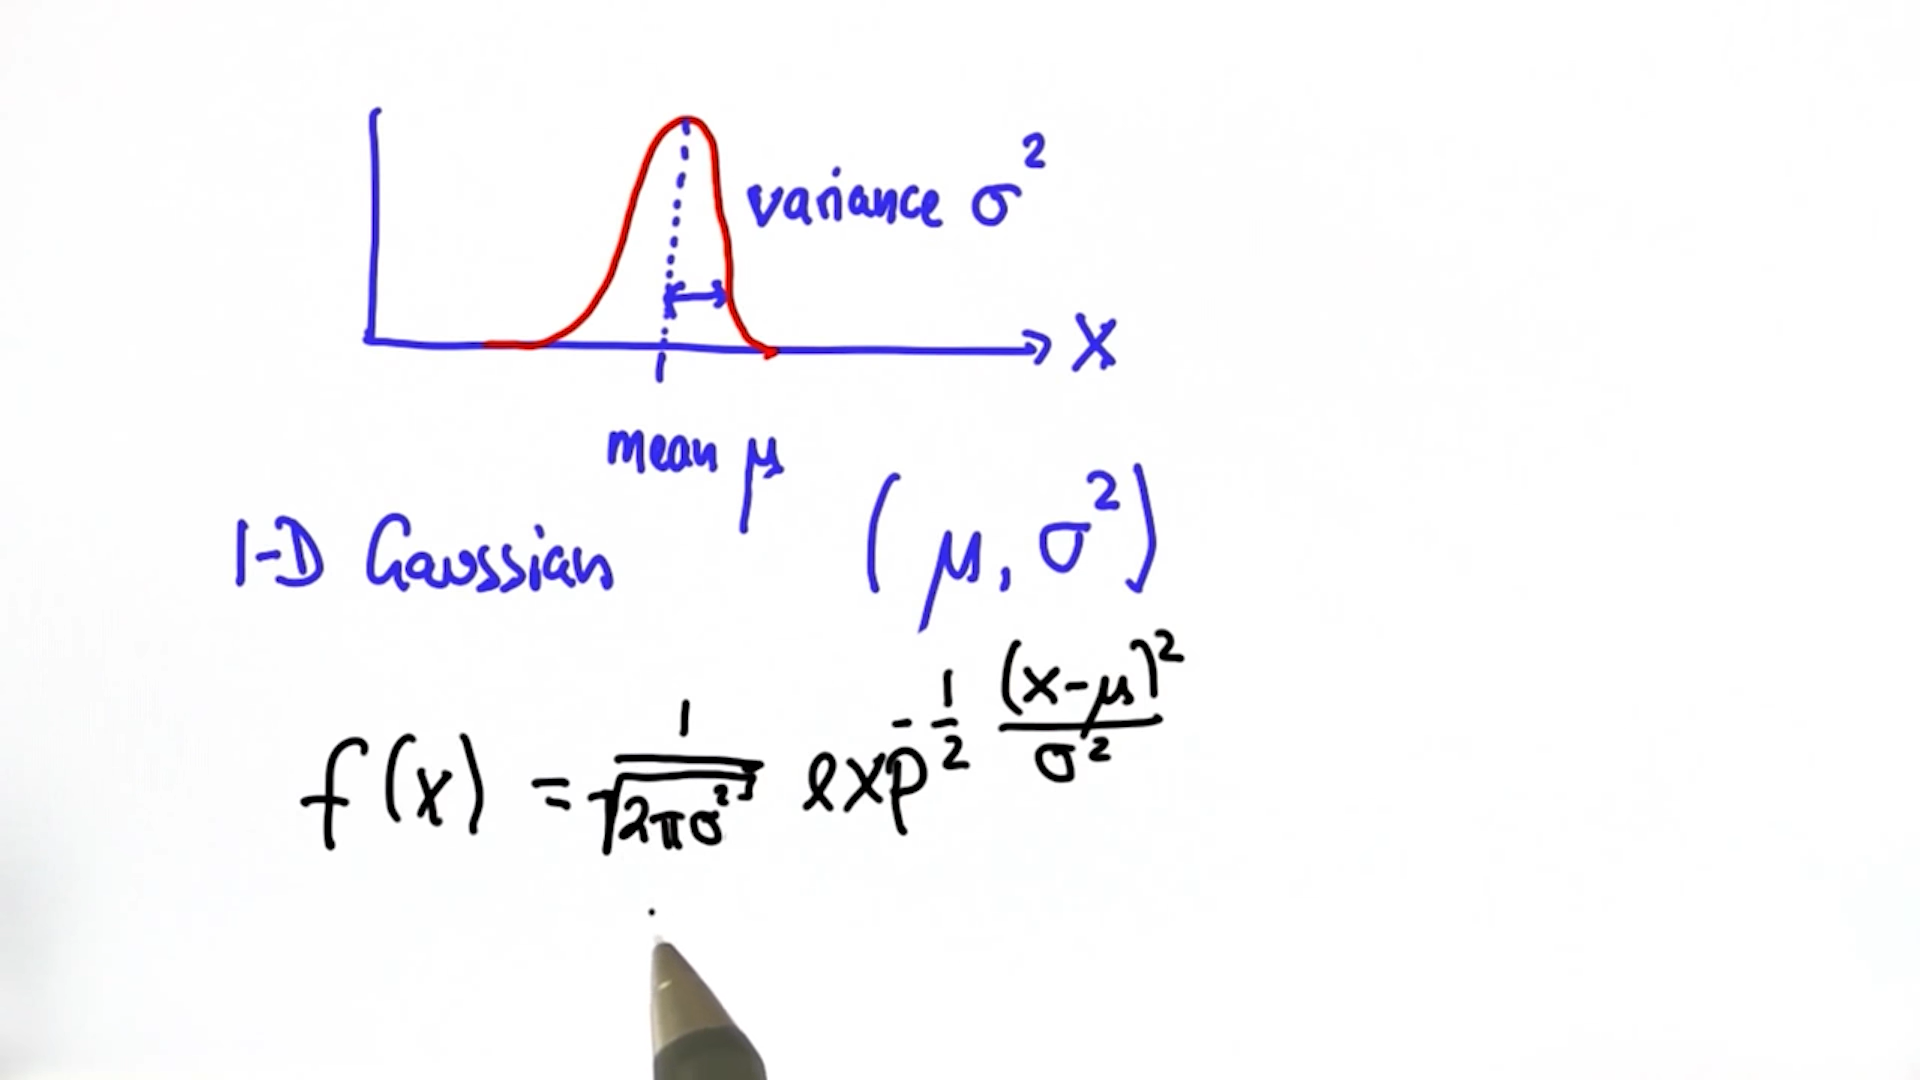 variance σ²
X
mean μ
1-D Gaussian (μ, σ²)
f(x) = 1/√2πσ² exp^-1/2 (x-μ)²/σ²